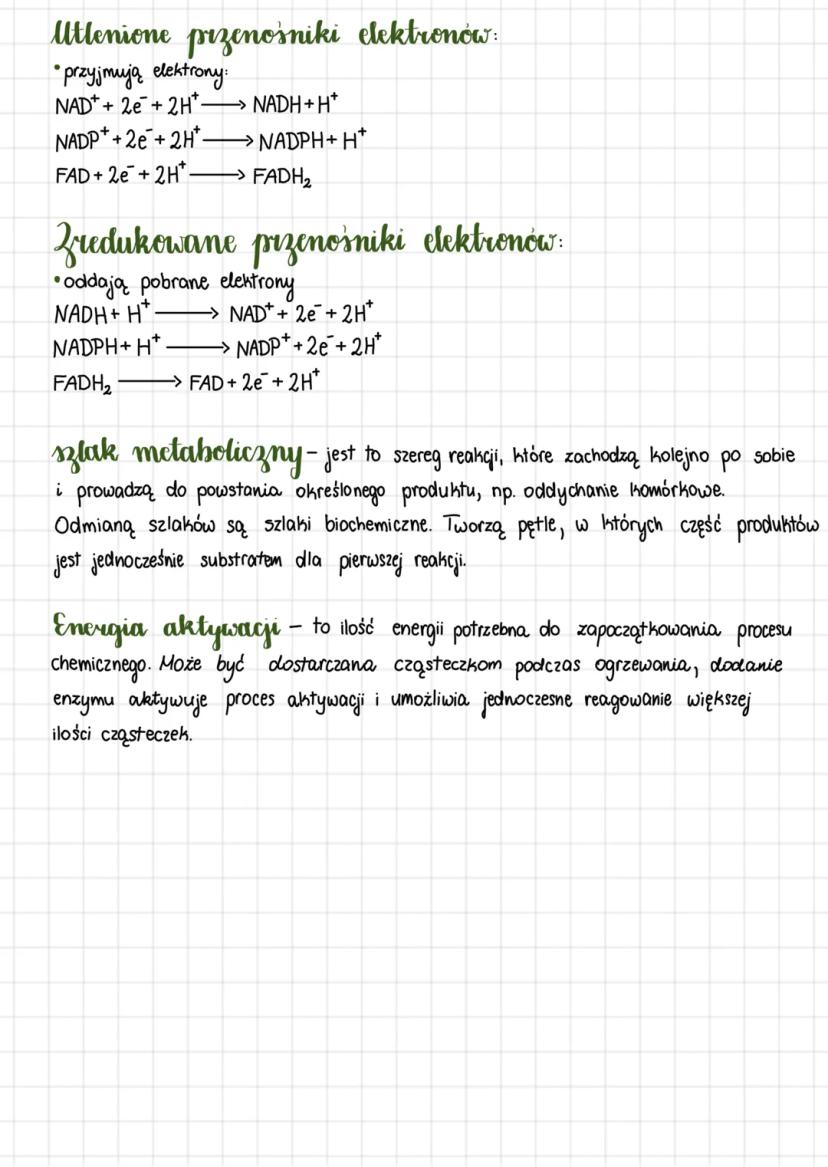 Utlenione przenośniki elektronów:
• przyjmują elektrony:
NAD⁺ + 2e⁻ + 2H⁺ ⟶ NADH + H⁺
NADP⁺ + 2e⁻ + 2H⁺ ⟶ NADPH + H⁺
FAD + 2e⁻ + 2H⁺ ⟶ FADH₂
Zredukowane przenośniki elektronów:
• oddają pobrane elektrony
NADH + H⁺ ⟶ NAD⁺ + 2e⁻ + 2H⁺
NADPH + H⁺ ⟶ NADP⁺ + 2e⁻ + 2H⁺
FADH₂ ⟶ FAD + 2e⁻ + 2H⁺
szlak metaboliczny – jest to szereg reakcji, które zachodzą kolejno po sobie
i prowadzą do powstania określonego produktu, np. oddychanie komórkowe.
Odmianą szlaków są szlaki biochemiczne. Tworzą pętle, w których część produktów
jest jednocześnie substratem dla pierwszej reakcji.
Energia aktywacji – to ilość energii potrzebna do zapoczątkowania procesu
chemicznego. Może być dostarczana cząsteczkom podczas ogrzewania, dodanie
enzymu aktywuje proces aktywacji i umożliwia jednoczesne reagowanie większej
ilości cząsteczek.